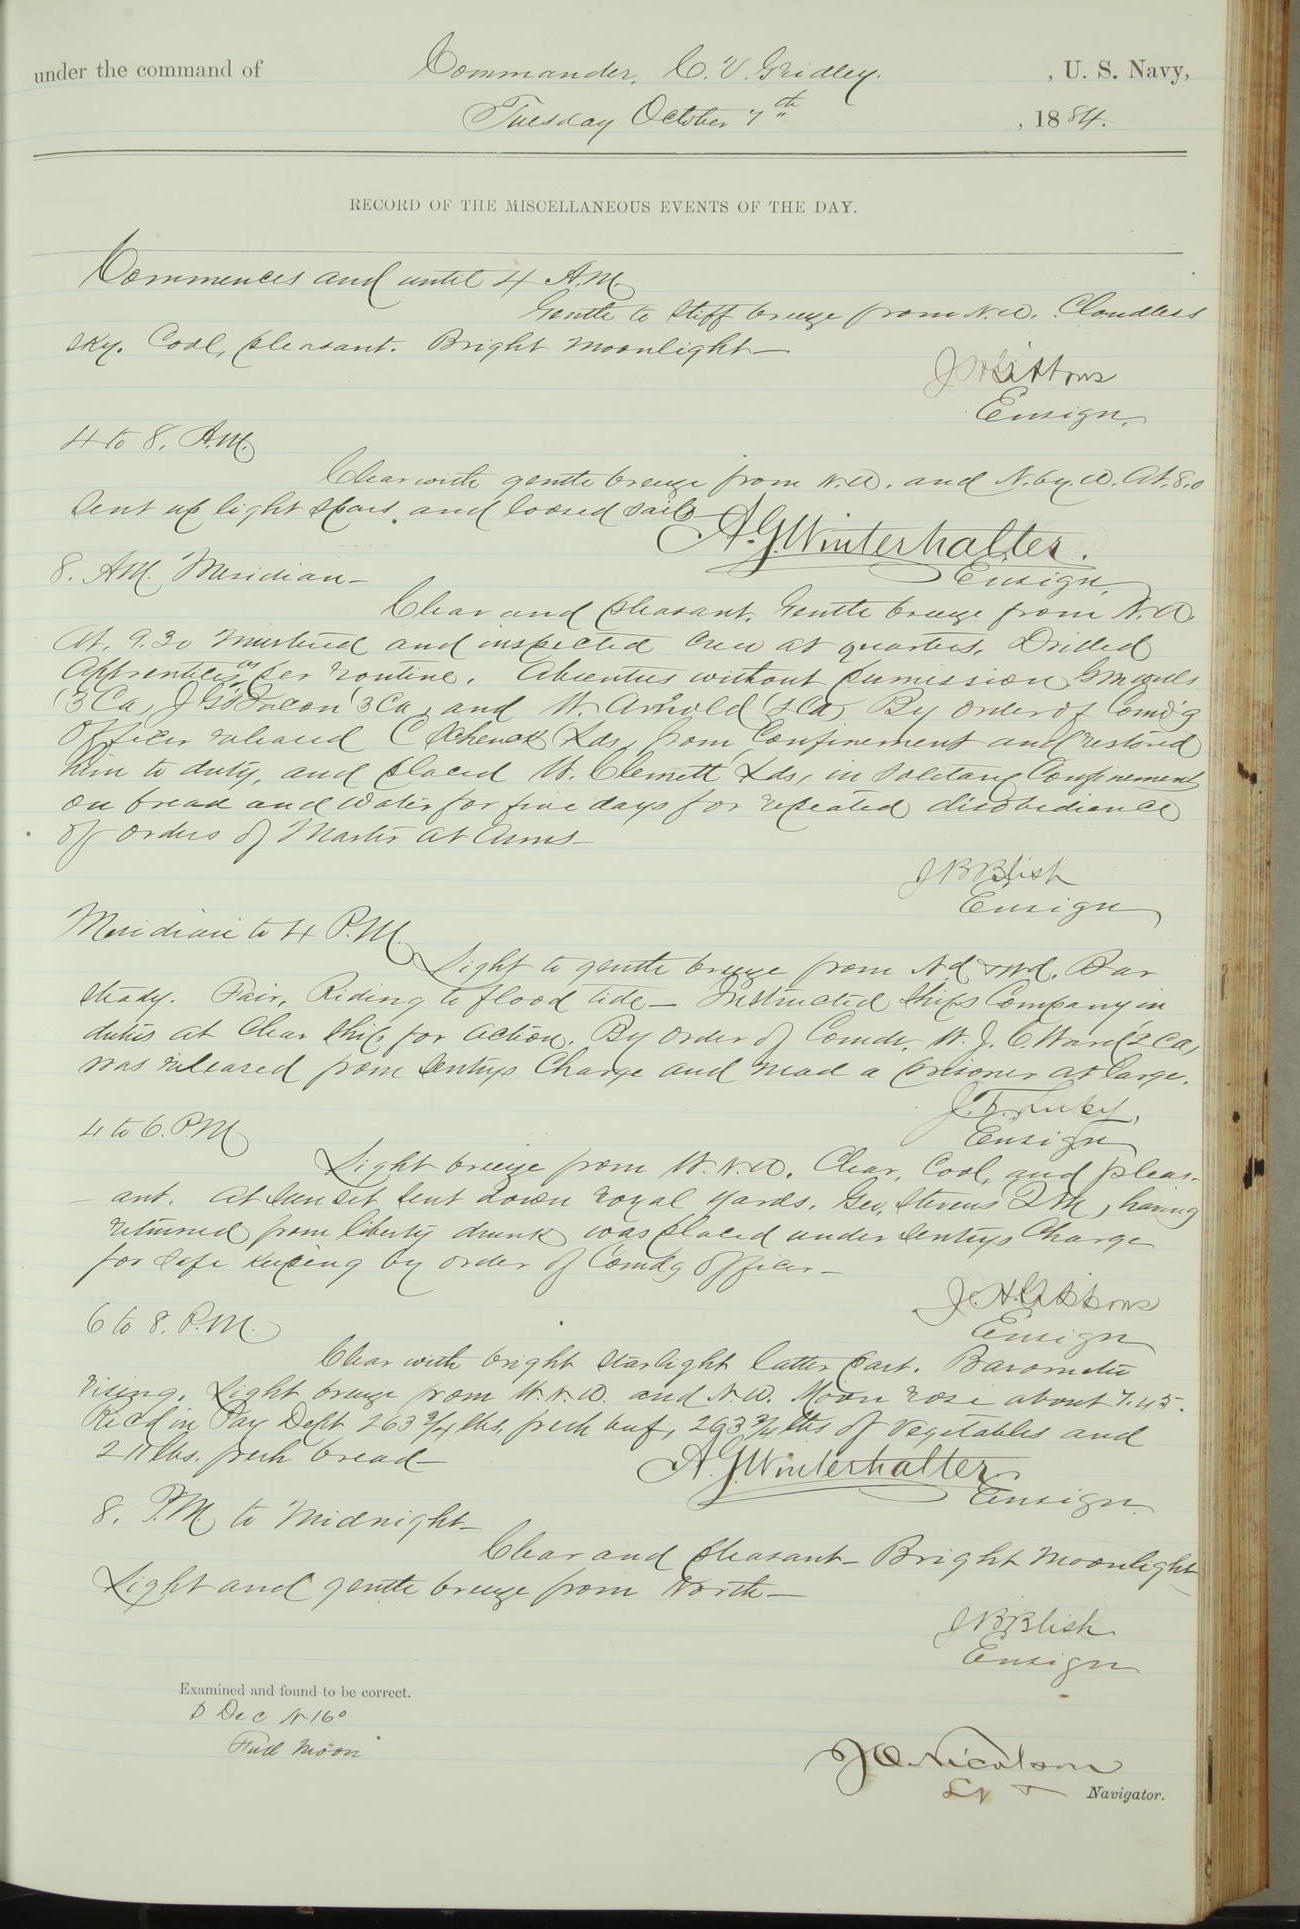 under the command of Commander, C. V. Gridley. , U. S. Navy,
Tuesday October 7th , 1884.
RECORD OF THE MISCELLANEOUS EVENTS OF THE DAY.
Commences and until 4 A.M.
Gentle to stiff breeze from N.W. Cloudless
sky. Cool, pleasant. Bright moonlight—
J H Gibbons
Ensign.
4 to 8. A.M.
Clear with gentle breeze from N.W. and N. by W. At. 8.0
sent up light spars and loosed sails
A. G. Winterhalter.
Ensign,
8. AM. Meridian—
Clear and pleasant. Gentle breeze from N.W.
At. 9.30 mustered and inspected crew at quarters. Drilled
Apprentices as per routine. Absentees without permission
(3Ca) J G Bacon (3Ca, and W. Arnold (2Ca) By order of Comd'g
Officer released C Schenck Lds, from Confinement and restored
him to duty, and placed W. Clemett Lds, in Solitary Confinement
on bread and water for five days for repeated disobedience
of orders of Master at Arms—
J B Blish
Ensign
Meridian to 4 P.M.
Light to gentle breeze from Nd & Wd. Bar
steady. Fair, Riding to flood tide— Instructed Ships Company in
duties at Clear Ship for action. By order of Comdr. W. J. C. Ward (2Ca,
was released from Sentrys Charge and mad a prisoner at large.
Ensign
4 to 6. P.M
Light breeze from W.N.W. Clear, Cool, and pleas-
ant. At Sunset sent down royal yards. Geo, Stevens QM, having
returned from liberty drunk was placed under Sentrys Charge
for safe keeping by order of Comd'g Officer—
J. H. Gibbons
Ensign
6 to 8. P.M.
Clear with bright starlight latter part. Barometer
rising. Light breeze from W.N.W. and N.W. Moon rose about 7.45.
Rec'd in Pay Dept 263 3/4 lbs, fresh beef, 263 3/4 lbs of Vegetables and
211 lbs. fresh bread—
A. G. Winterhalter
Ensign
8. P.M. to Midnight—
Clear and pleasant— Bright moonlight
Light and gentle breeze from North—
J B Blish
Ensign
Examined and found to be correct.
Dec N 16°
Full Moon
J O. Nicolson
Lt Navigator.